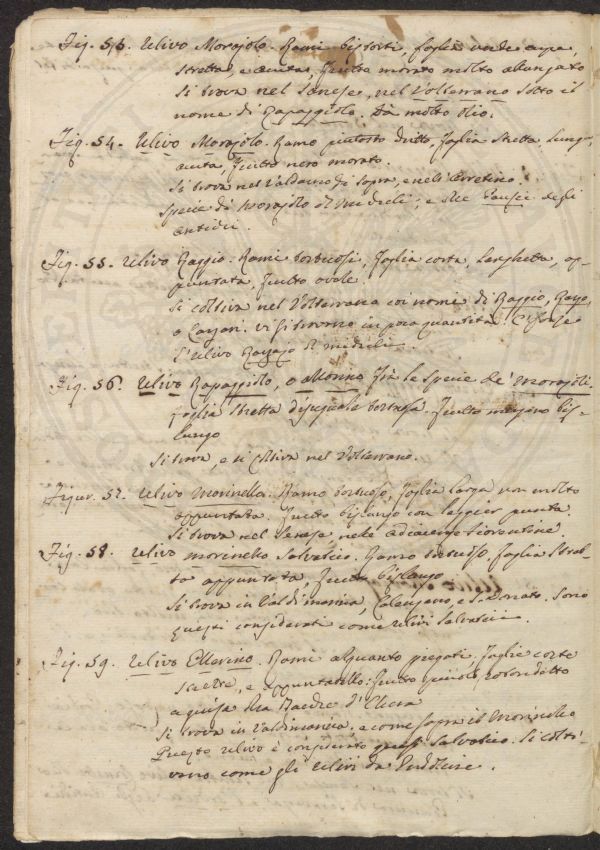 Fig. 53. Ulivo Morajolo. Rami bistorti, foglia verde cupa,
stretta, e acuta, frutto morato molto allungato
Si trova nel Sanese, nel Volterrano sotto il
nome di Rapaggiolo. Dà molto olio.
Fig. 54. Ulivo Morajolo. Ramo piutosto dritto, foglia stretta lunga,
acuta, frutto nero morato.
Si trova nel Valdarno di sopra, e nell'Aretino.
Specie di Morajolo di Micheli; e the Pausie degli
antichi.
Fig. 55. Ulivo Raggio. Rami tortuosi, foglia corta, larghetta, ap-
puntata, frutto ovale.
Si coltiva nel Volterrano coi nomi di Raggio, Razzo,
o Vi si trovano in poca quantità. È forse
l'Ulivo Razzajo di Micheli.
Fig. 56. Ulivo Rapaggiolo, o Fra le specie de' Morajoli.
foglia stretta disuguale tortuosa. frutto mezzano bis-
lungo
Si trova, e si coltiva nel Volterrano.
Figur. 57. Ulivo Morinella. Ramo tortuoso, foglia larga non molto
appuntata. frutto bislungo con leggier punta.
Si trova nel nelle adiacenze fiorentine
Fig. 58. Ulivo morinello salvatico. Ramo tortuoso. foglia stret-
ta appuntata, frutto bislungo.
Si trova in Valdimarina, Calenzano, e S. Donato. Sono
questi considerati come ulivi salvatici.
Fig. 59. Ulivo Ellerino. Rami alquanto piegati, foglie corte
strette, e appuntatello: frutto piccolo, rotondetto
a guisa di Bacche d'Ellera
Si trova in Valdimarina. e come sopra il Morinello
Questo ulivo è considerato quasi salvatico. Si colti-
vano come gli Ulivi da